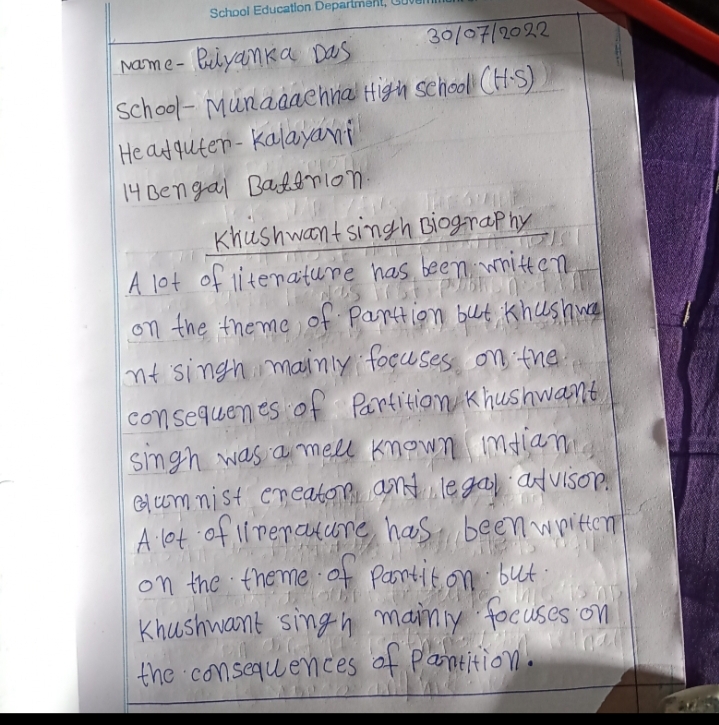 School Education Department,
30/07/2022
Name- Priyanka Das
School- Munaaachria High school (H.S)
Headquter- Kalayani
14 Bengal Battrion.
Khushwant singh Biography
A lot of literature has been written
on the theme of Parttion but Khushwa
nt singh mainly focuses on the
consequenes of Partition Khushwant
singh was a mell known indian
columnist creator and legal advisor.
A lot of lirerature has been written
on the theme of Partiton but
Khushwant singh mainly focuses on
the consequences of Partition.